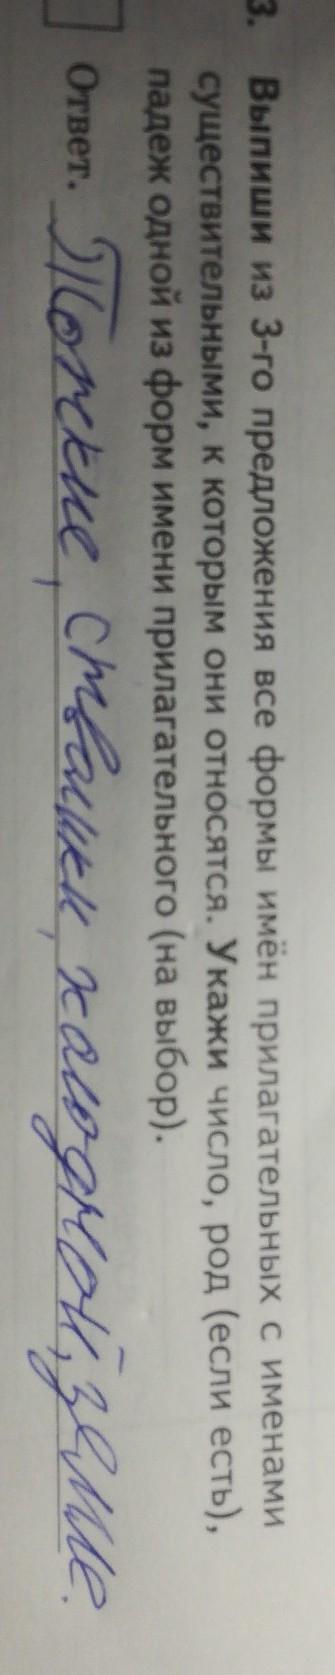 3. Выпиши из 3-го предложения все формы имён прилагательных с именами
существительными, к которым они относятся. Укажи число, род (если есть),
падеж одной из форм имени прилагательного (на выбор).
Ответ. Тонкие, ствашки, холодной, земле.